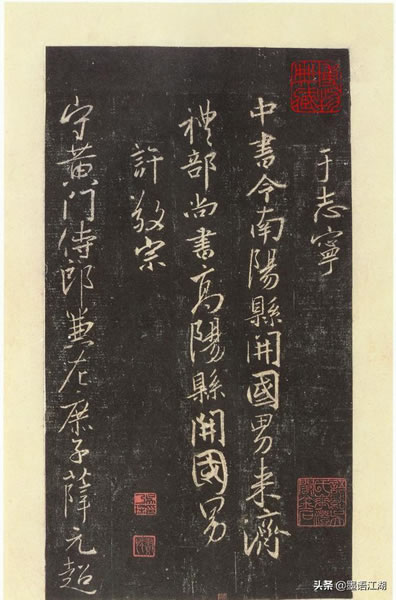 于志寧
中書令南陽縣開國男來濟
禮部尚書高陽縣開國男
許敬宗
守黃門侍郎兼左庶子薛元超
头条 @墨语江湖